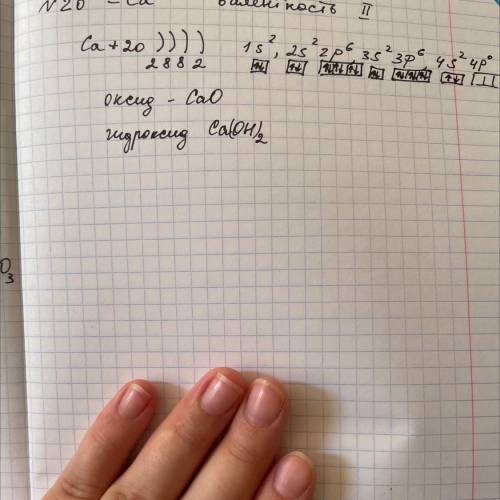 N 20 - Ca валентность II
Ca + 20 ) ) ) ) 1s², 2s² 2p⁶, 3s² 3p⁶, 4s² 4p⁰
2 8 8 2
оксид - CaO
гидроксид Ca(OH)₂
O₃